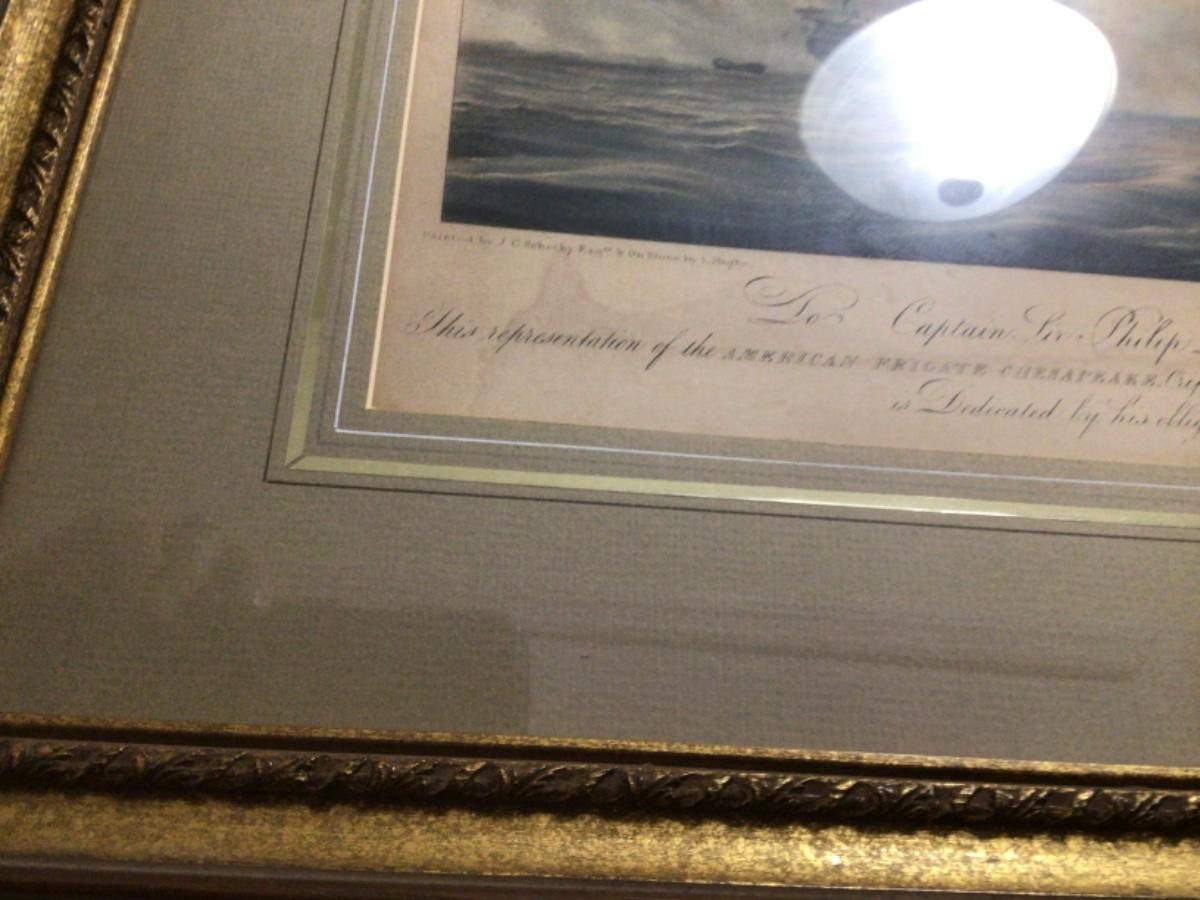 Painted by J. C. Schetky Esqre & On Stone by L. Haghe
To Captain Sir Philip
This representation of the AMERICAN FRIGATE CHESAPEAKE,
is Dedicated by his